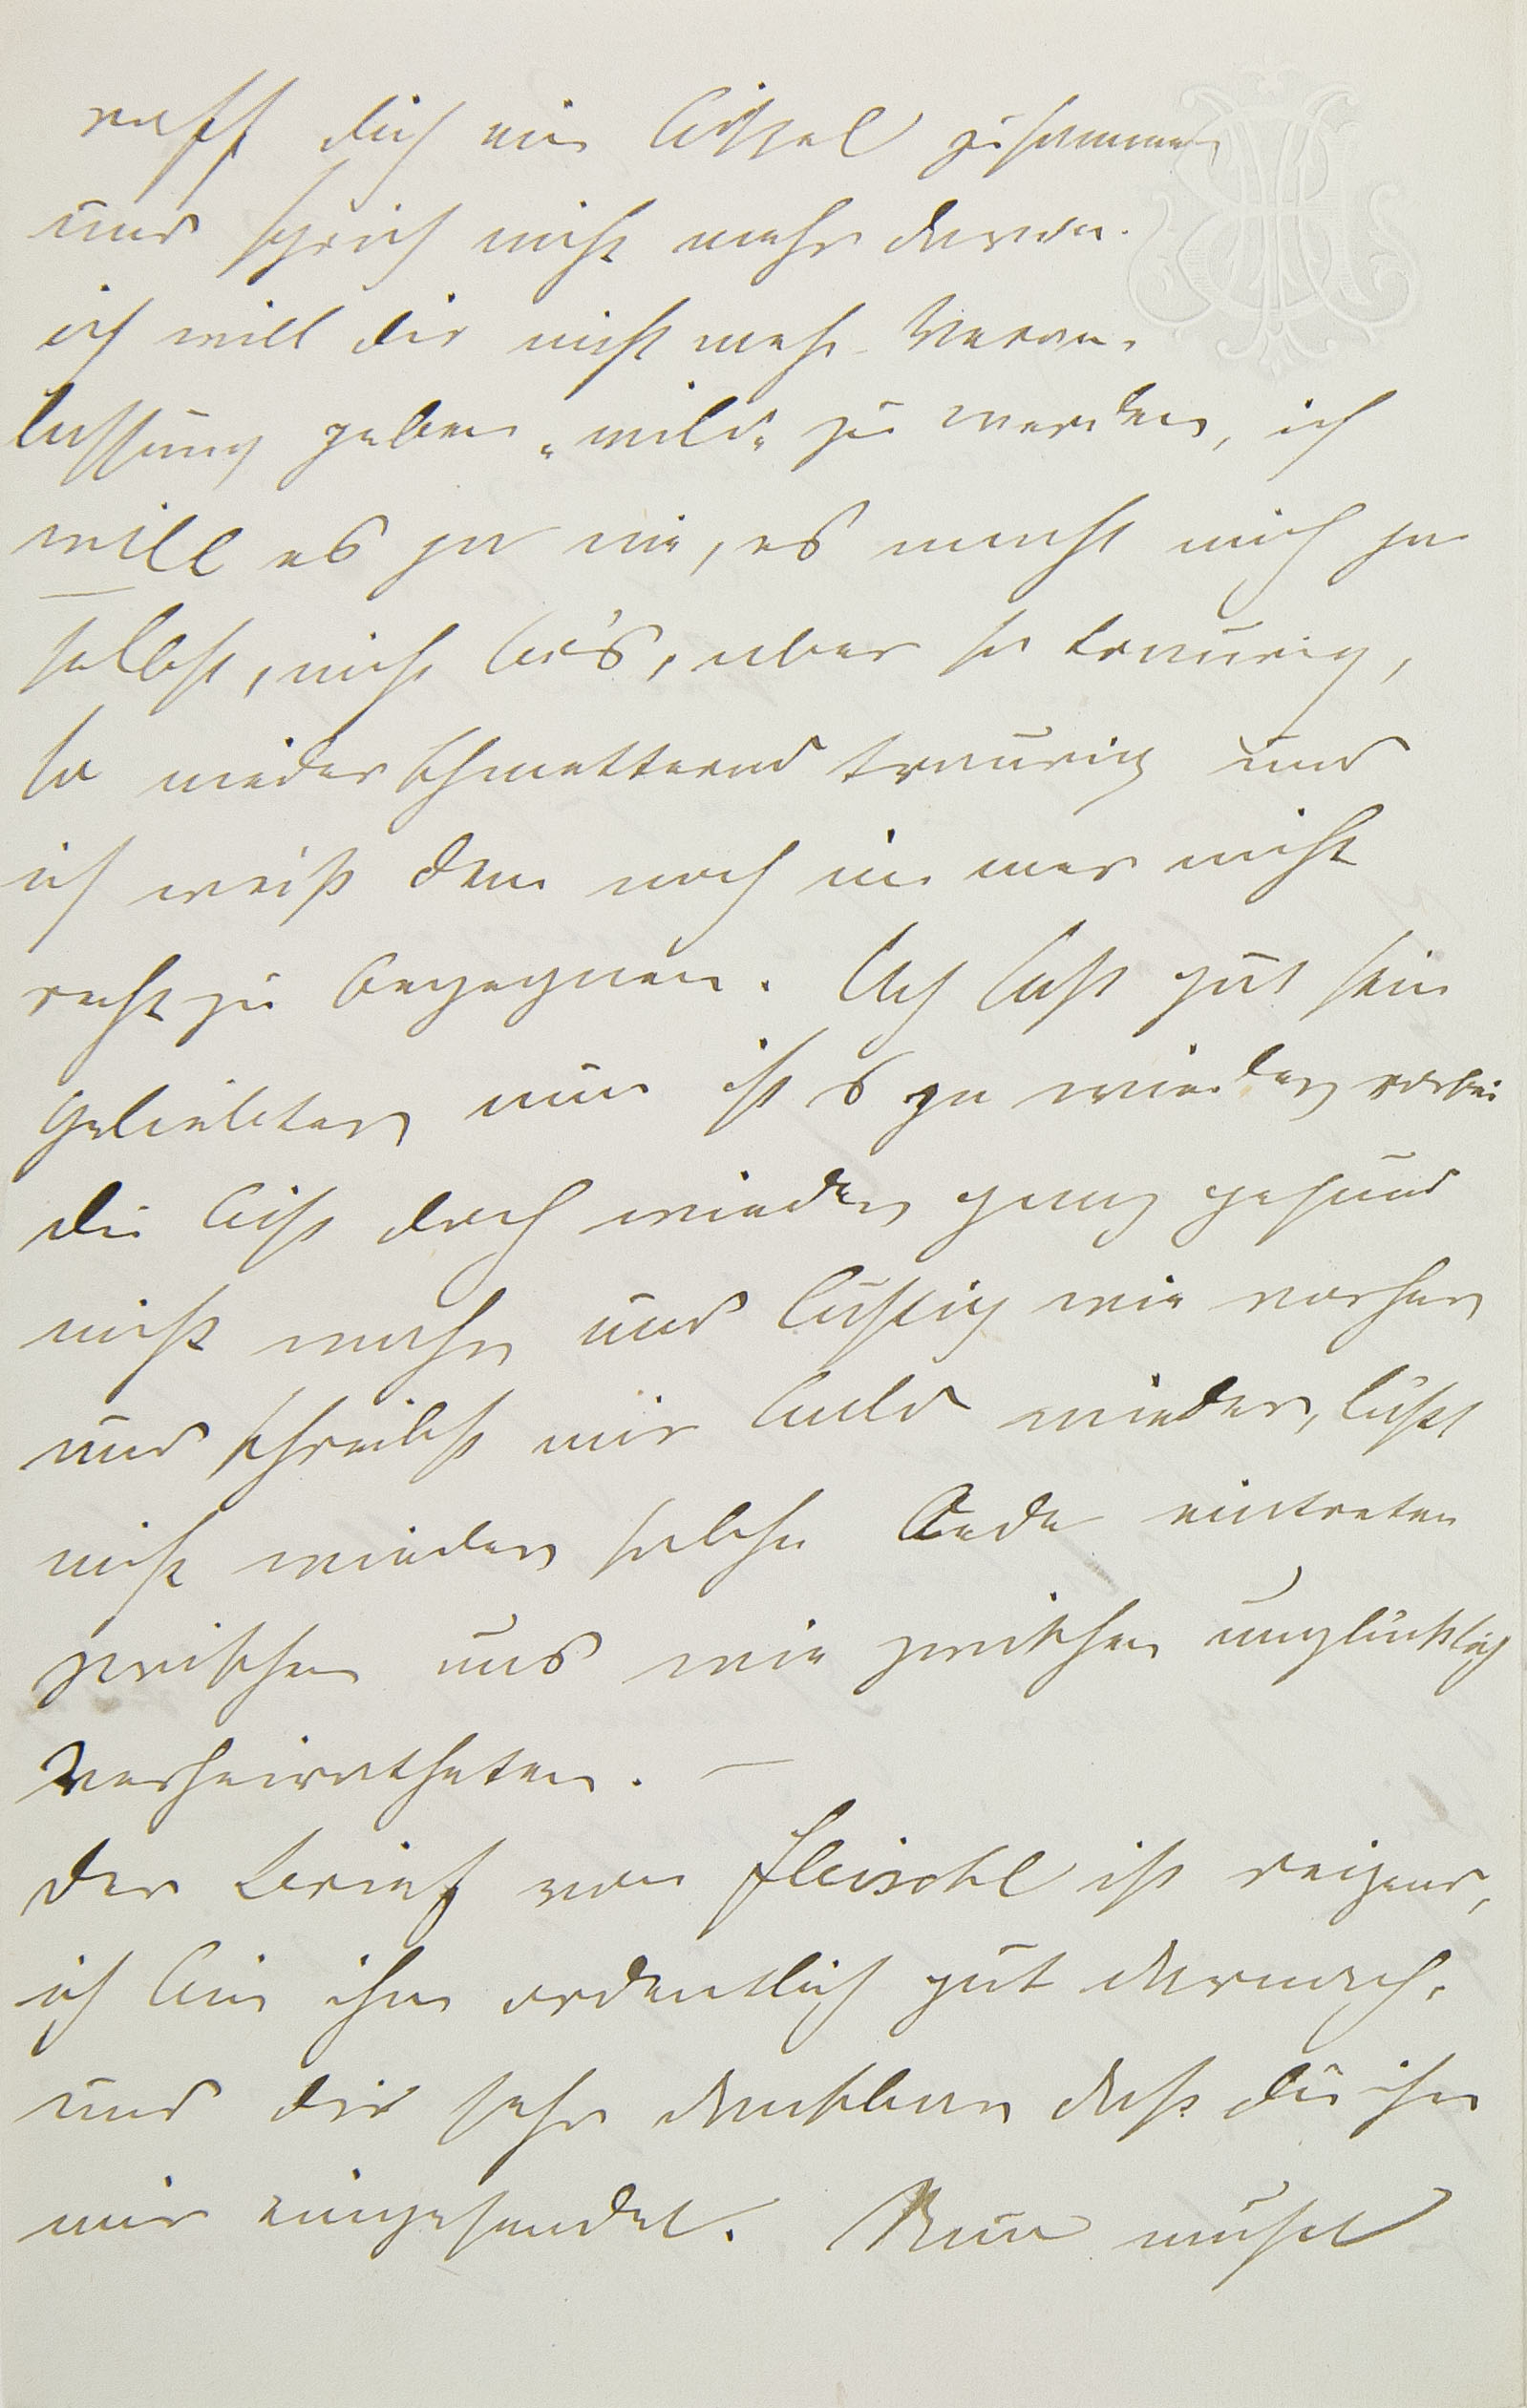 raff dich ein bissel zusammen
und sprich nicht mehr davon.
ich will dir nicht mehr Veran-
lassung geben „wild“ zu werden, ich
will es ja nie, es macht mich ja
selbst, nicht bös, aber so traurig,
so niederschmetternd traurig und
ich weiß dem noch immer nicht
recht zu begegnen. Ach laß gut sein
geliebter nun ist's ja wieder vorbei
du bist doch wieder ganz gesund
nicht wahr und lustig wie vorher
und schreibst mir bald wieder, läßt
nicht wieder solche Oede eintreten
zwischen uns wie zwischen unglücklich
Verheiratheten. —
der Brief von Fleischl ist reizend,
ich bin ihm ordentlich gut darnach.
und dir sehr dankbar daß du ihn
mir eingesendet. Nun mußt